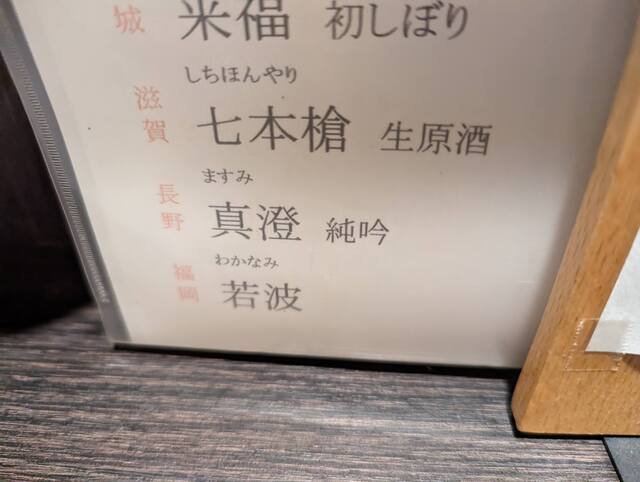 城 米福 初しぼり
しちほんやり
滋賀 七本槍 生原酒
ますみ
長野 真澄 純吟
わかなみ
福岡 若波